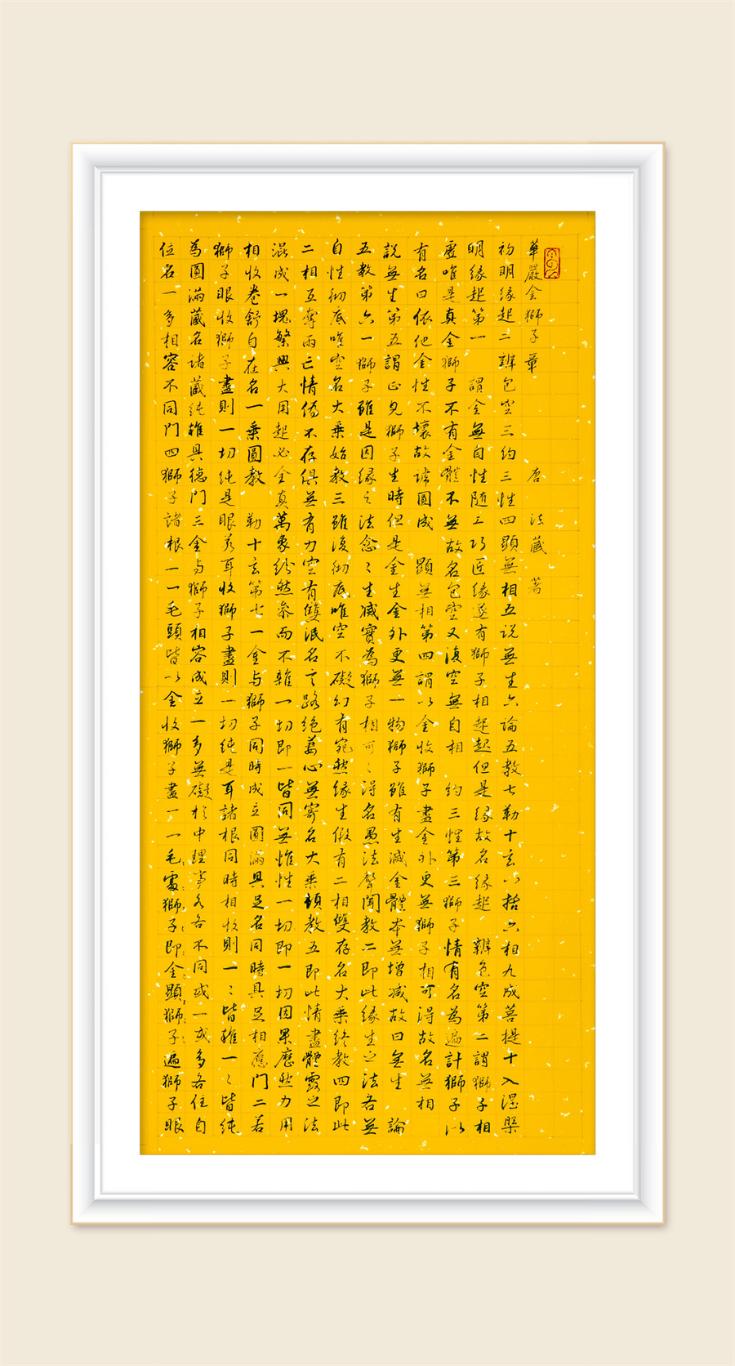 華嚴金獅子章 唐 法藏 著
初明緣起二辨色空三約三性四顯無相五说無生六論五教七勒十玄八括六相九成菩提十入涅槃
明緣起第一 謂金無自性随工巧匠緣遂有獅子相起起但是緣故名緣起 辨色空第二謂獅子相
虛唯是真金獅子不有金體不無故名色空又復空無自相 約三性第三獅子情有名為遍計獅子似
有名曰依他金性不壞故諕圓成 顯無相第四謂以金收獅子盡金外更無獅子相可得故名無相
説無生第五謂正見獅子生時但是金生金外更無一物獅子雖有生滅金體本無增减故曰無生 論
五教第六一獅子雖是因緣之法念〻生滅實為獅子相可〻得名愚法聲聞教二即此緣生之法各無
自性彻底唯空名大乘始教三雖復彻底唯空不礙幻有宛然緣生假有二相雙存名大乘終教四即此
二相互奪兩亡情偽不存俱無有力空有雙泯名言路絕葛心無寄名大乘頓教五即此情盡體露之法
混成一塊繁興大用起必全真萬象紛然參而不雜一切即一皆同無惟性一切即一切因果歷然力用
相收卷舒自在名一乘圓教 勒十玄第七一金与獅子同時成立圓滿具足名同時具足相應門二若
獅子眼收獅子盡則一切纯是眼若耳收獅子盡則一切纯是耳諸根同時相收則一〻皆雜一〻皆纯
為圓滿藏名诸藏纯雜具德門三金与獅子相容成立一多無礙於中理事各各不同或一或多各住自
位名一多相容不同門四獅子諸根一一毛頭皆以金收獅子盡一一毛處獅子即金顯獅子遍獅子眼